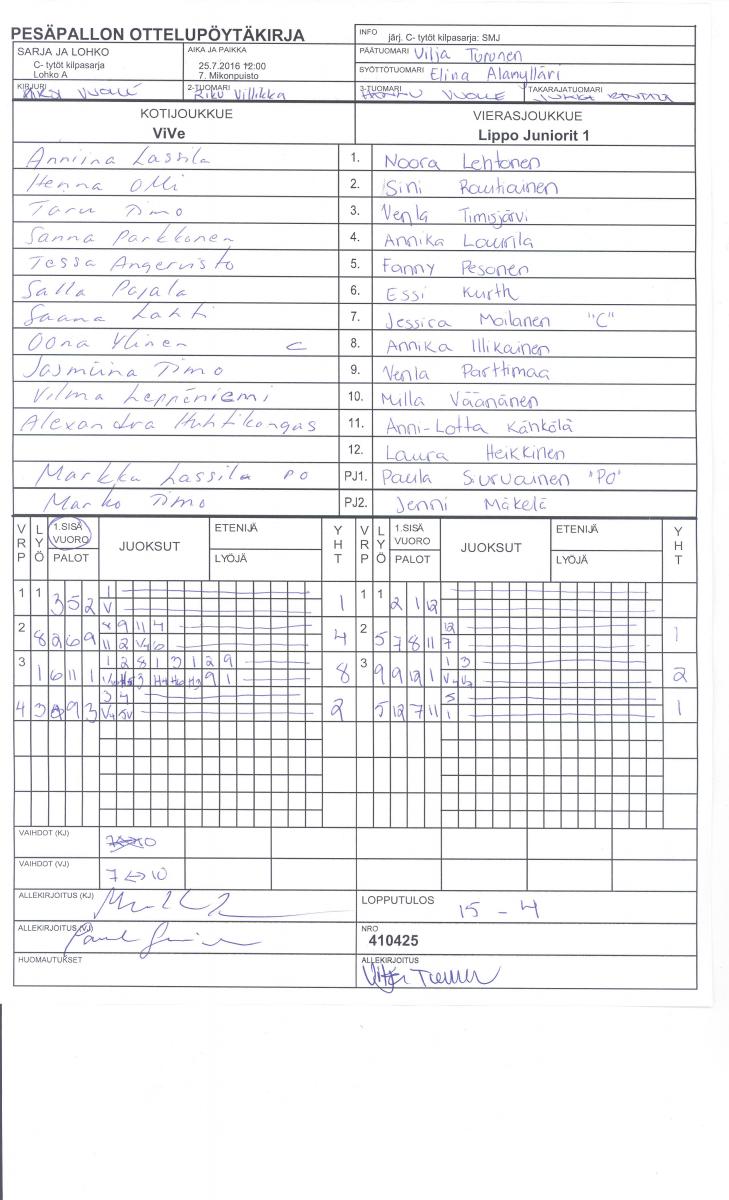 PESÄPALLON OTTELUPÖYTÄKIRJA
INFO järj. C- tytöt kilpasarja: SMJ
SARJA JA LOHKO
C- tytöt kilpasarja
Lohko A
AIKA JA PAIKKA
25.7.2016 12:00
7. Mikonpuisto
PÄÄTUOMARI Vilja Turunen
SYÖTTÖTUOMARI Elina Alamylläri
KIRJURI VUOLLE
2-TUOMARI Riku Villikka
3-TUOMARI VUOLLE
TAKARAJATUOMARI
KOTIJOUKKUE
ViVe
VIERASJOUKKUE
Lippo Juniorit 1
Anniina Lassila 1. Noora Lehtonen
Henna Olli 2. Sini Rautiainen
Taru Timo 3. Venla Timisjärvi
Sanna Parkkonen 4. Annika Laurila
Tessa Angervisto 5. Fanny Pesonen
Salla Pajala 6. Essi Kurth
Saana Lahti 7. Jessica Moilanen "C"
Oona Ylinen C 8. Annika Illikainen
Jasmiina Timo 9. Venla Parttimaa
Vilma Leppäniemi 10. Milla Väänänen
Alexandra Huhtikangas 11. Anni-Lotta Kähkölä
12. Laura Heikkinen
Markku Lassila PO PJ1. Paula Siurvainen "PO"
Marko Timo PJ2. Jenni Mäkelä
VRP LYÖ 1.SISÄ VUORO PALOT JUOKSUT ETENIJÄ LYÖJÄ YHT VRP LYÖ 1.SISÄ VUORO PALOT JUOKSUT ETENIJÄ LYÖJÄ YHT
1 1 3 5 2 1 V 1 1 1 2 1 12
2 8 2 6 9 8 9 11 4 4 2 5 7 8 11 12 7 1
3 1 6 11 1 1 2 8 1 3 1 2 9 8 3 9 9 12 1 1 3 2
4 3 9 3 3 4 2 5 12 7 11 5 1 1
VAIHDOT (KJ)
VAIHDOT (VJ) 7 <-> 10
ALLEKIRJOITUS (KJ)
LOPPUTULOS 15 - 4
ALLEKIRJOITUS (VJ)
NRO
410425
HUOMAUTUKSET
ALLEKIRJOITUS